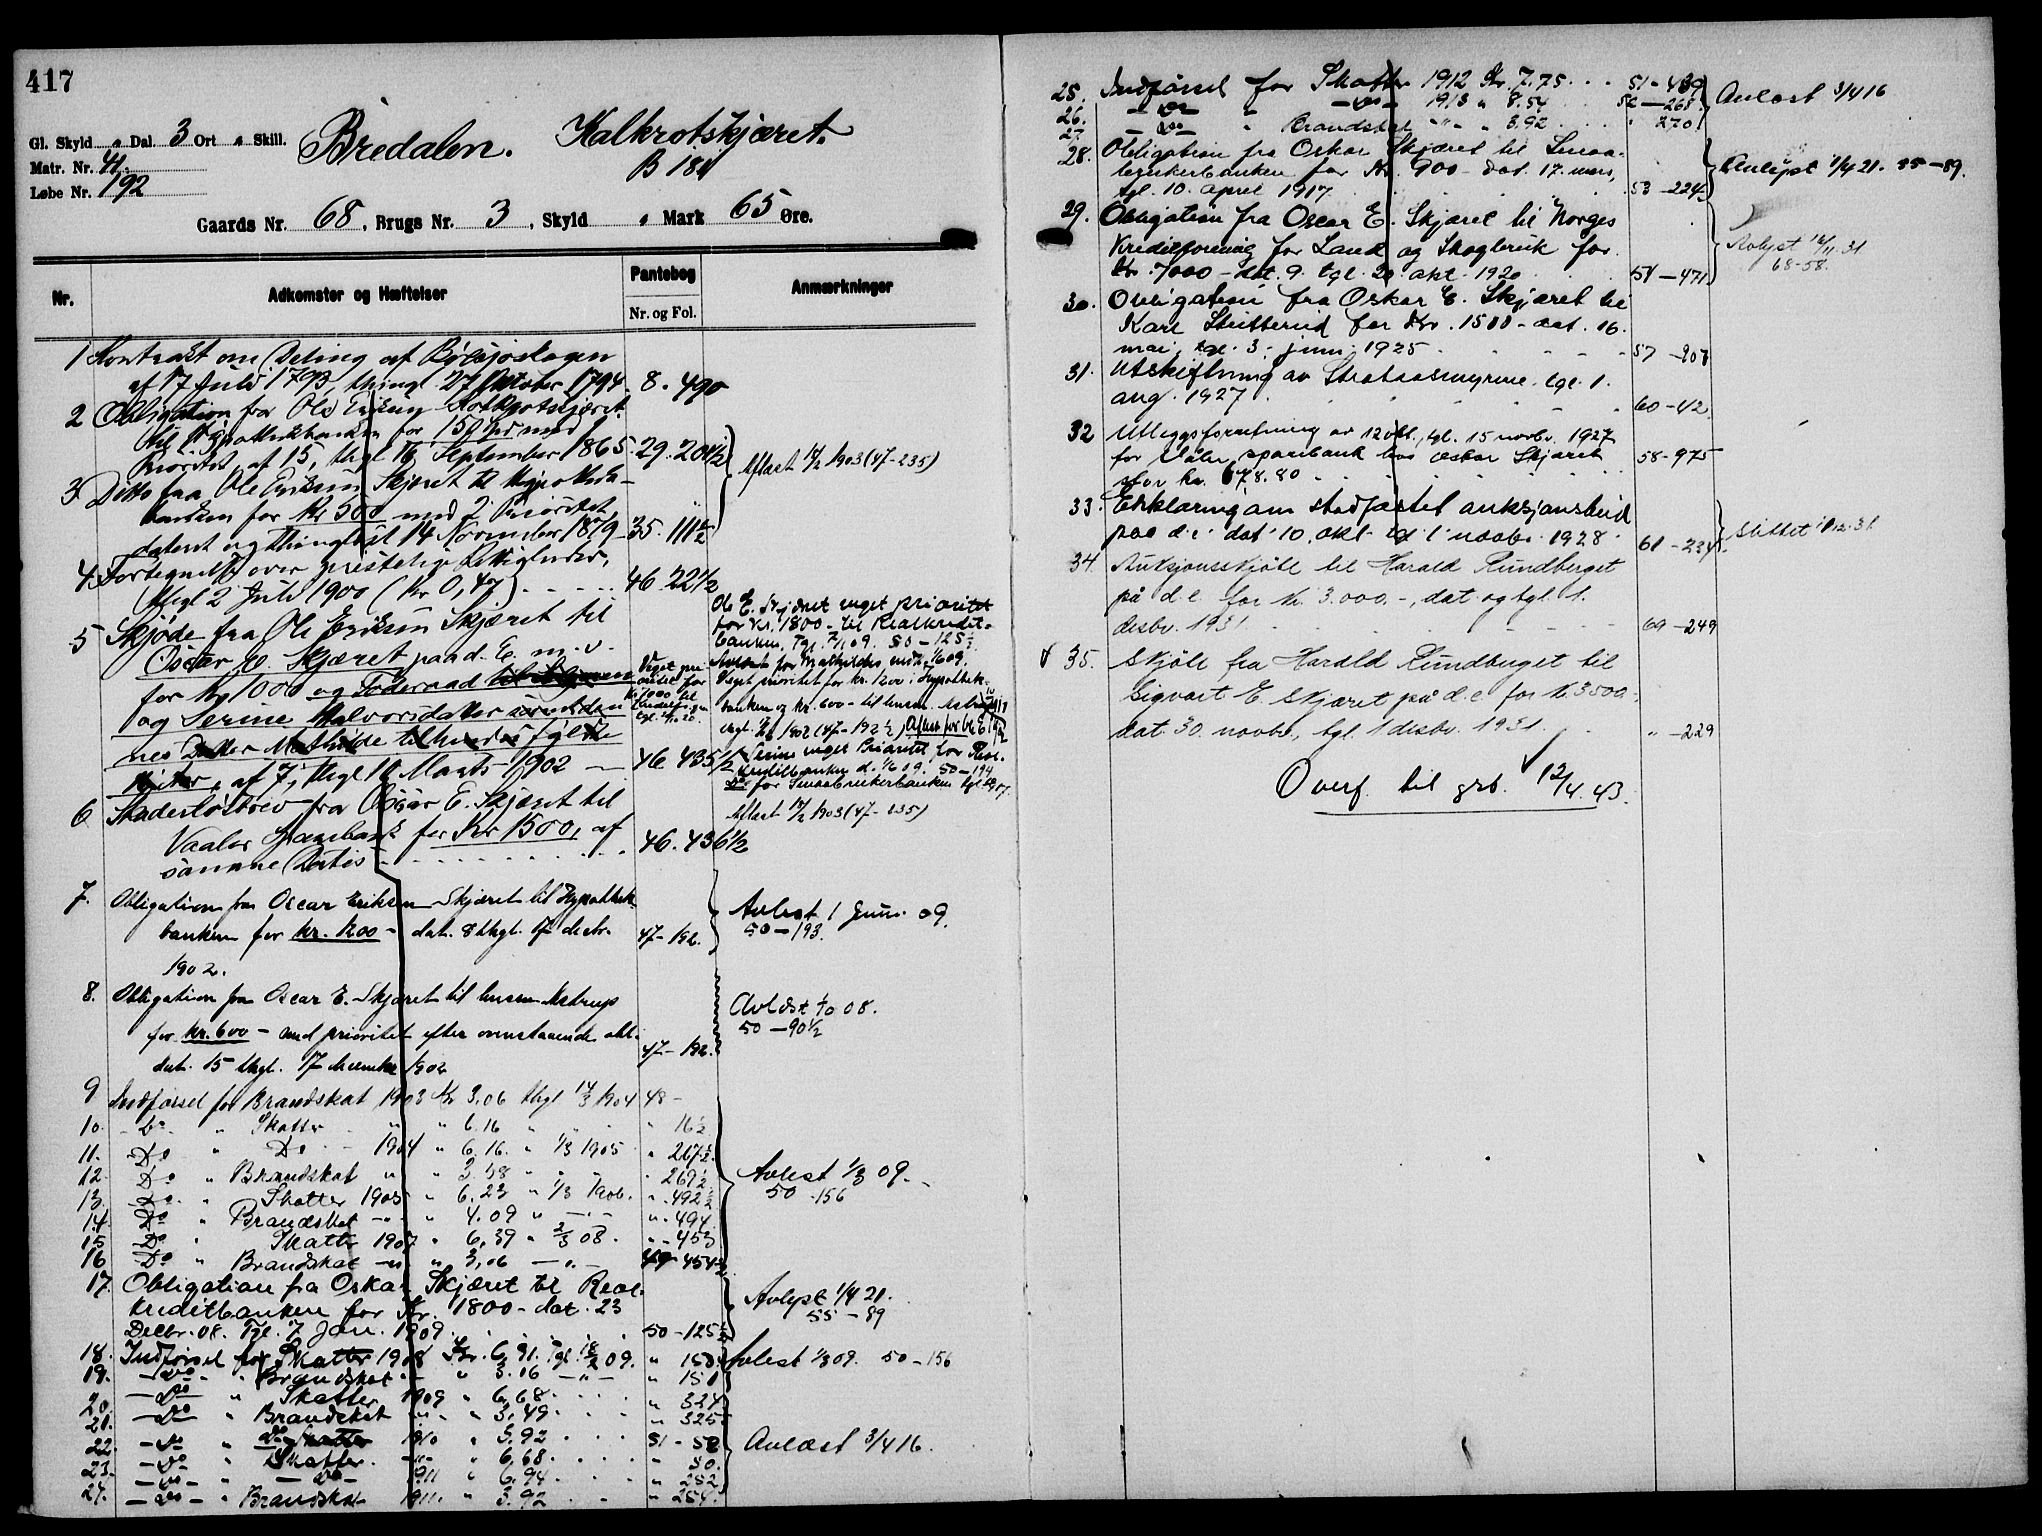 417
Gl. Skyld " Dal. 3 Ort " Skill.
Matr. Nr. 41.
Løbe Nr. 192
Bredalen. Kalkrotskjæret.
B 181
Gaards Nr. 68, Brugs Nr. 3, Skyld " Mark 65 Øre.
Nr. Adkomster og Hæftelser Pantebog Nr. og Fol. Anmærkninger
1 Kontrakt om Deling af
af 17 Juli 1793, thingl. 27 Oktober 1794 8. 490
2 Obligation fra Ole Eriksen
til Hypothekbanken for 150 med
Prioritet af 15, thgl. 16 September 1865 29. 201½
Aflæst 14/2 1903 (47-235)
3 Ditto fra Ole Eriksen Skjæret til Hypothek-
banken for Kr 500 med 2 Prioritet
dateret og thinglæst 14 November 1879 35. 111½
4 Fortegnelse over
thgl 2 Juli 1900 (Kr 0,47) 46. 22½
5 Skjøde fra Ole Eriksen Skjæret til
Oscar E. Skjæret paa d. E. m. v.
for Kr 1000 og Føderaad
og Serine Halvorsdatter
nes Datter Mathilde
af 7, thgl 10 Marts 1902 46. 435½
Ole E. Skjæret veget prioritet
for Kr. 1800 - til Realkredit-
banken, Tgl. 7/1 09. 50-125½
Veget prioritet for kr. 1200 i Hypothek-
banken og kr. 600 - til
1902 (47-192½)
Serine veget Prioritet for Real-
kreditbanken 50-194
Do for Smaabrukerbanken
6 Skadesløsbrev fra Oscar E. Skjæret til
Vaaler Sparebank for Kr 1500, af
samme Datoe 46. 436½
Aflæst 14/2 1903 (47-235)
7. Obligation fra Oscar Eriksen Skjæret til Hypothek-
banken for kr. 1200 - dat. 8 thgl. 17 decbr. 47-192.
1902.
Avlæst 1 Juni 09.
50-193.
8. Obligation fra Oscar E. Skjæret til Astrup
for kr. 600 - med prioritet efter ovenstaaende obl.
dat. 15 thgl. 17 december 1902 47-192.
50-90½
9 Indførsel for Brandskat 1903 Kr 3.06 thgl 14/3 1904 48-
10. - Do - " Skatter " " 6.16 " " 16½
11. Do " Do - 1904 " 6.16. " 1/3 1905 " 267½.
12. Do " Brandskat " " 3.58 " " " 269½
13. Do. " Skatter 1905 " 6.23 " 1/3 1906. " 492½
14. Do " Brandskat " 4.09 " " 494
15 Do " Skatter 1907 " 6,39 " 2/3 08. " 453
16 Do " Brandskat " 3,06 " 49 454½
Avlæst 1/3 09.
50-156
17. Obligation fra Oskar Skjæret til Real-
kreditbanken for Kr. 1800 - dat. 23
Decbr. 08. Tgl. 7 Jan. 1909. 50-125½
Avlyst 1/4 21.
55-89
18. Indførsel for Skatter 1908 Kr. 6,91. Tgl. 18/2 09. " 150.
19. - Do - " Brandskat " " 3.16 - " - " 151
Avlæst 1/3 09. 50-156
20. - Do - " Skatter 1909 " 6,68. " 324
21. - Do - " Brandskat " " 3,49. " 325
22. - Do " Do 1910 " 3.92 51-52
23. - Do - " Skatter. " " 6,68. " 50.
- Do - " - Do - 1911 " 6.94. " 252
24. - Do - " Brandskat 1911. " 3.92 " 254.
Avlæst 3/4 16.
25. Indførsel for Skatter 1912 Kr. 7.75. 51-439
26. - Do - " - Do - 1913 " 8.54 52-268.
27. - Do - " Brandskat " " 3,92 " 270
Avlæst 3/4 16
28. Obligation fra Oskar Skjæret til Smaa-
brukerbanken for Kr. 900 - dat. 17. mars,
tgl. 10. april 1917 53-224
Avlyst 1/4 21. 55-89.
29. Obligation fra Oscar E. Skjæret til Norges
Kreditforening for Land og Skogbruk for
Kr. 7000 - dat. 9. tgl. 20. okt. 1920 54-471
Avlyst 12/11.31
68-58.
30. Obligation fra Oskar E. Skjæret til
Karl for Kr. 1500 - dat. 16.
mai, tgl. 3. juni 1925 57-207
31. Utskiftning av tgl. 1.
aug. 1927 60-42
32 Utlegsforretning av 12 okt., tgl. 15 novbr. 1927
for Våler sparebank hos Oskar Skjæret
for kr. 678.80 58-975
33. Erklæring om stadfæstet auksjonsbud
paa d. e. dat. 10. okt. tgl. 1 novbr. 1928. 61-224
Slettet 1/12.31.
34. Auksjonsskjøte til Harald Rundberget
på d. e. for kr. 3.000.-, dat. og tgl. 1.
desbr. 1931 69-249
35. Skjøte fra Harald Rundberget til
Sigvart E. Skjæret på d. e. for kr 3500.
dat. 30. novbr., tgl. 1 desbr. 1931. " -229
Overf. til grb. 12/4.43.